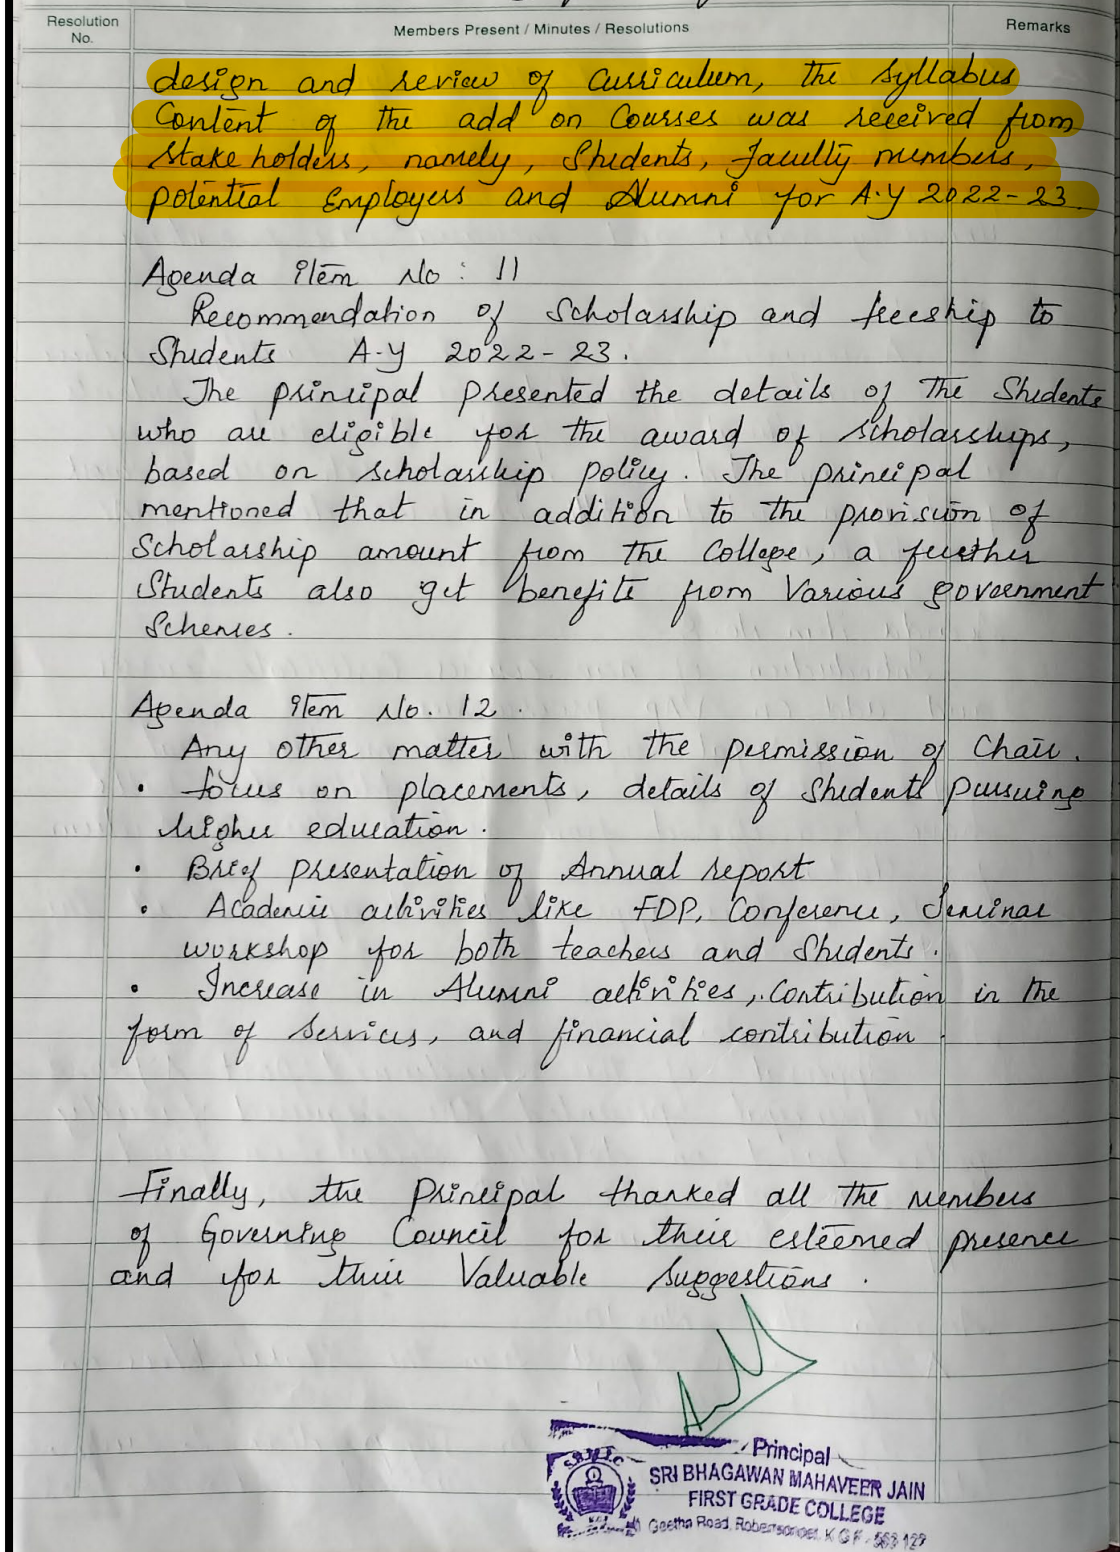 Resolution No.
Members Present / Minutes / Resolutions
Remarks
design and review of Curriculum, the syllabus
Content of the add on Courses was received from
stake holders, namely, Students, faculty members,
potential Employers and Alumni for A.Y 2022-23.
Agenda item No : 11
Recommendation of Scholarship and freeship to
Students A-Y 2022-23.
The principal presented the details of the Students
who are eligible for the award of scholarships,
based on scholarship policy. The principal
mentioned that in addition to the provision of
Scholarship amount from the College, a further
Students also get benefits from Various government
Schemes.
Agenda item No. 12.
Any other matter with the permission of Chair.
• focus on placements, details of Students pursuing
higher education.
• Brief presentation of Annual report
• Academic activities like FDP, Conference, Seminar
workshop for both teachers and Students.
• Increase in Alumni activities, Contribution in the
form of Services, and financial contribution.
Finally, the Principal thanked all the members
of Governing Council for their esteemed presence
and for their Valuable Suggestions.
Principal
SRI BHAGAWAN MAHAVEER JAIN
FIRST GRADE COLLEGE
Geetha Road, Robertsonpet, K G F - 563 122